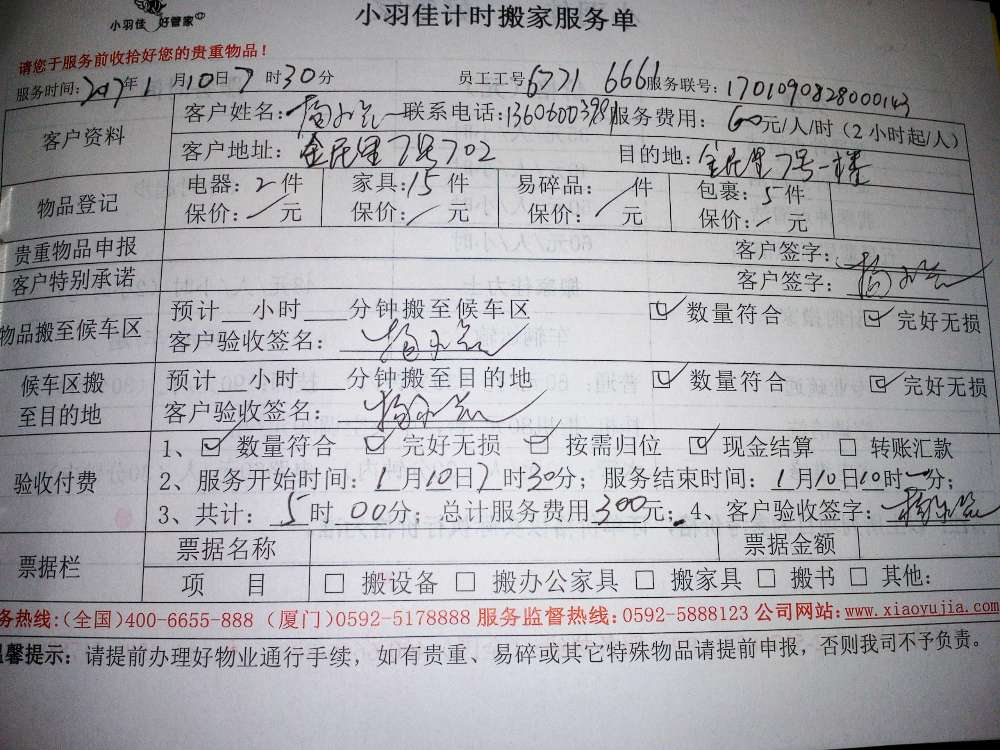 小羽佳 好管家
小羽佳计时搬家服务单
请您于服务前收拾好您的贵重物品！
服务时间：2017年1月10日7时30分 员工工号6771 6661服务联号：1701090828000143
客户资料
客户姓名： 联系电话： 服务费用：60元/人/时（2小时起/人）
客户地址：金民里7号702 目的地：金民里7号一楼
物品登记
电器：2件 家具：15件 易碎品：/件 包裹：5件
保价：/元 保价：/元 保价：/元 保价：/元
贵重物品申报 客户签字：
客户特别承诺 客户签字：
物品搬至候车区
预计___小时___分钟搬至候车区 ☑数量符合 ☑完好无损
客户验收签名：
候车区搬至目的地
预计___小时___分钟搬至目的地 ☑数量符合 ☑完好无损
客户验收签名：
验收付费
1、☑数量符合 ☑完好无损 ☑按需归位 ☑现金结算 □转账汇款
2、服务开始时间：1月10日7时30分；服务结束时间：1月10日10时一分；
3、共计：5时00分；总计服务费用300元；4、客户验收签字：
票据栏
票据名称 票据金额
项 目 □搬设备 □搬办公家具 □搬家具 □搬书 □其他：
务热线：(全国)400-6655-888 (厦门)0592-5178888 服务监督热线：0592-5888123 公司网站：www.xiaoyujia.com
温馨提示：请提前办理好物业通行手续，如有贵重、易碎或其它特殊物品请提前申报，否则我司不予负责。